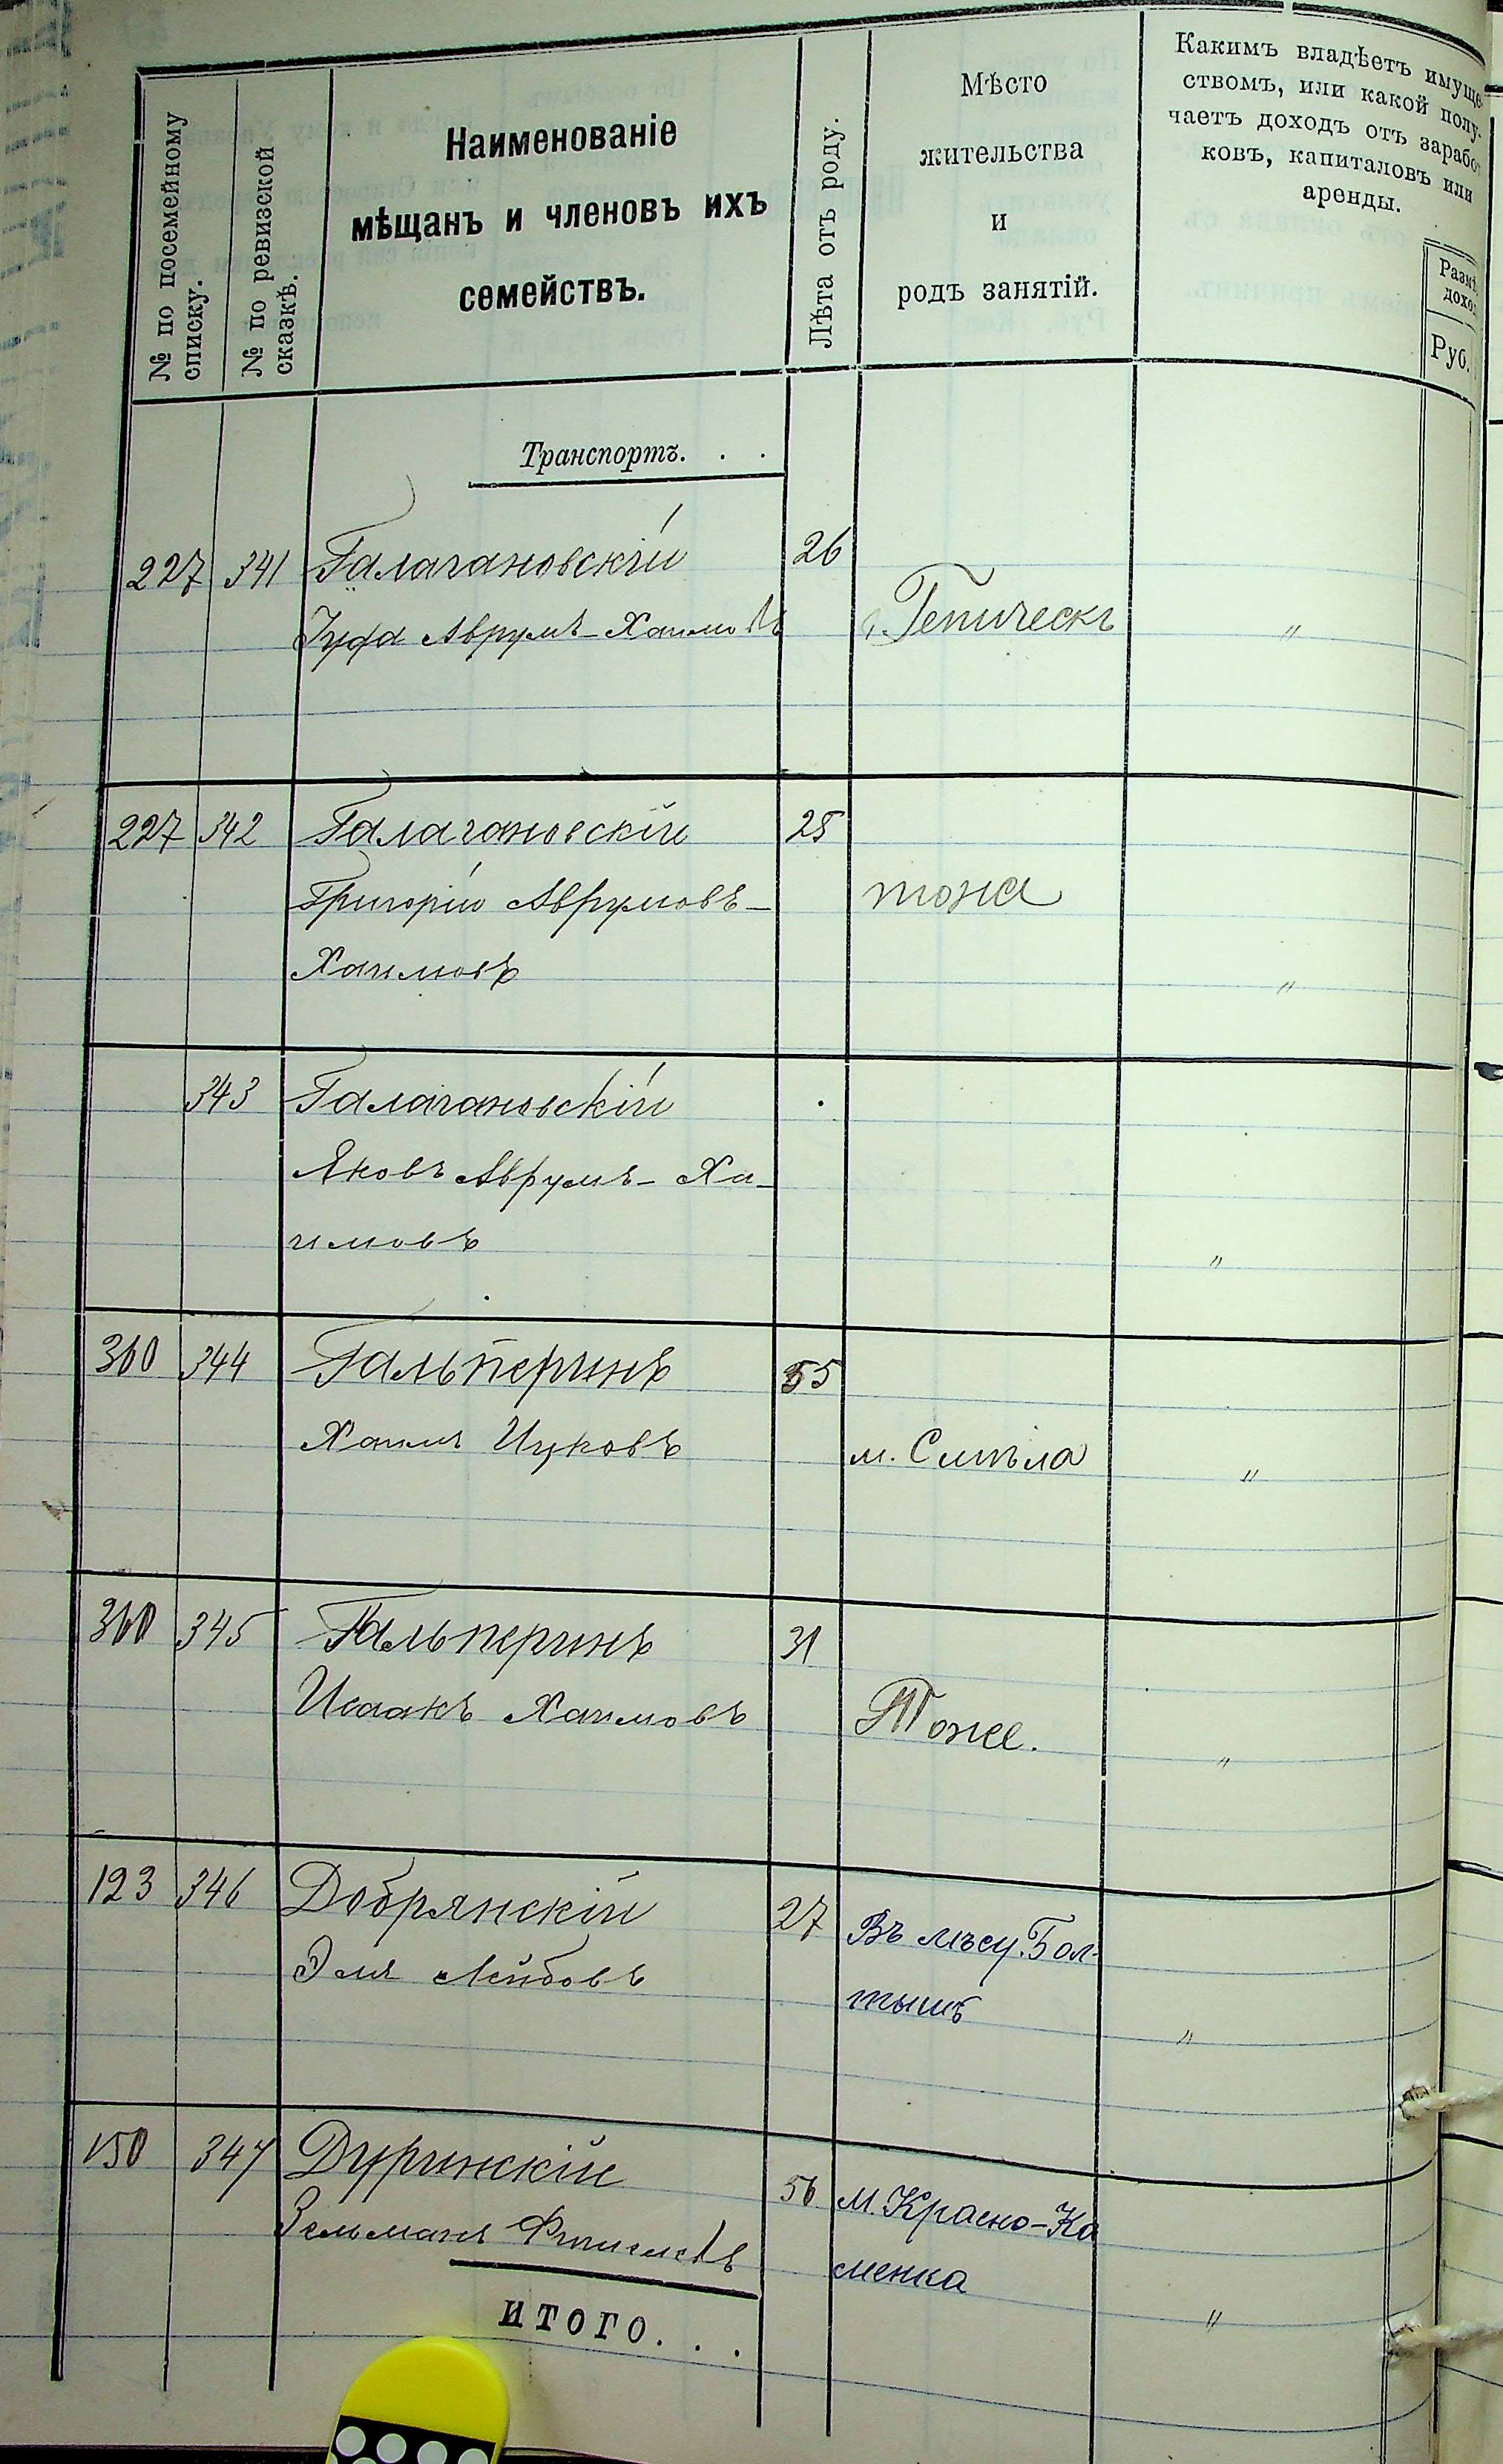 № по посемейному
списку.
№ по ревизской
сказкѣ.
Наименованіе
мѣщанъ и членовъ ихъ
семействъ.
Лѣта отъ роду.
Мѣсто
жительства
и
родъ занятій.
Какимъ владѣетъ имуще-
ствомъ, или какой полу-
чаетъ доходъ отъ зарабо
ковъ, капиталовъ или
аренды.
Размѣ
доход
Руб.
Транспортъ. . .
227 341 Галагановскій 26
Іуда Аврумъ-Хаимовъ г. Геническъ "
227 342 Галагановскій 25
Григорій Аврумовъ- тоже
Хаимовъ "
343 Галагановскій
Яковъ Аврумъ-Ха-
имовъ "
360 344 Гальперинъ 55
Хаимъ Ицковъ м. Смѣла "
360 345 Гальперинъ 31
Исаакъ Хаимовъ Тоже. "
123 346 Добрянскій 27 Въ мѣсц. Бол-
Эля Лейбовъ тышъ "
150 347 Дуринскій 56 м. Красно-Ка
Зельманъ менка "
ИТОГО. . .